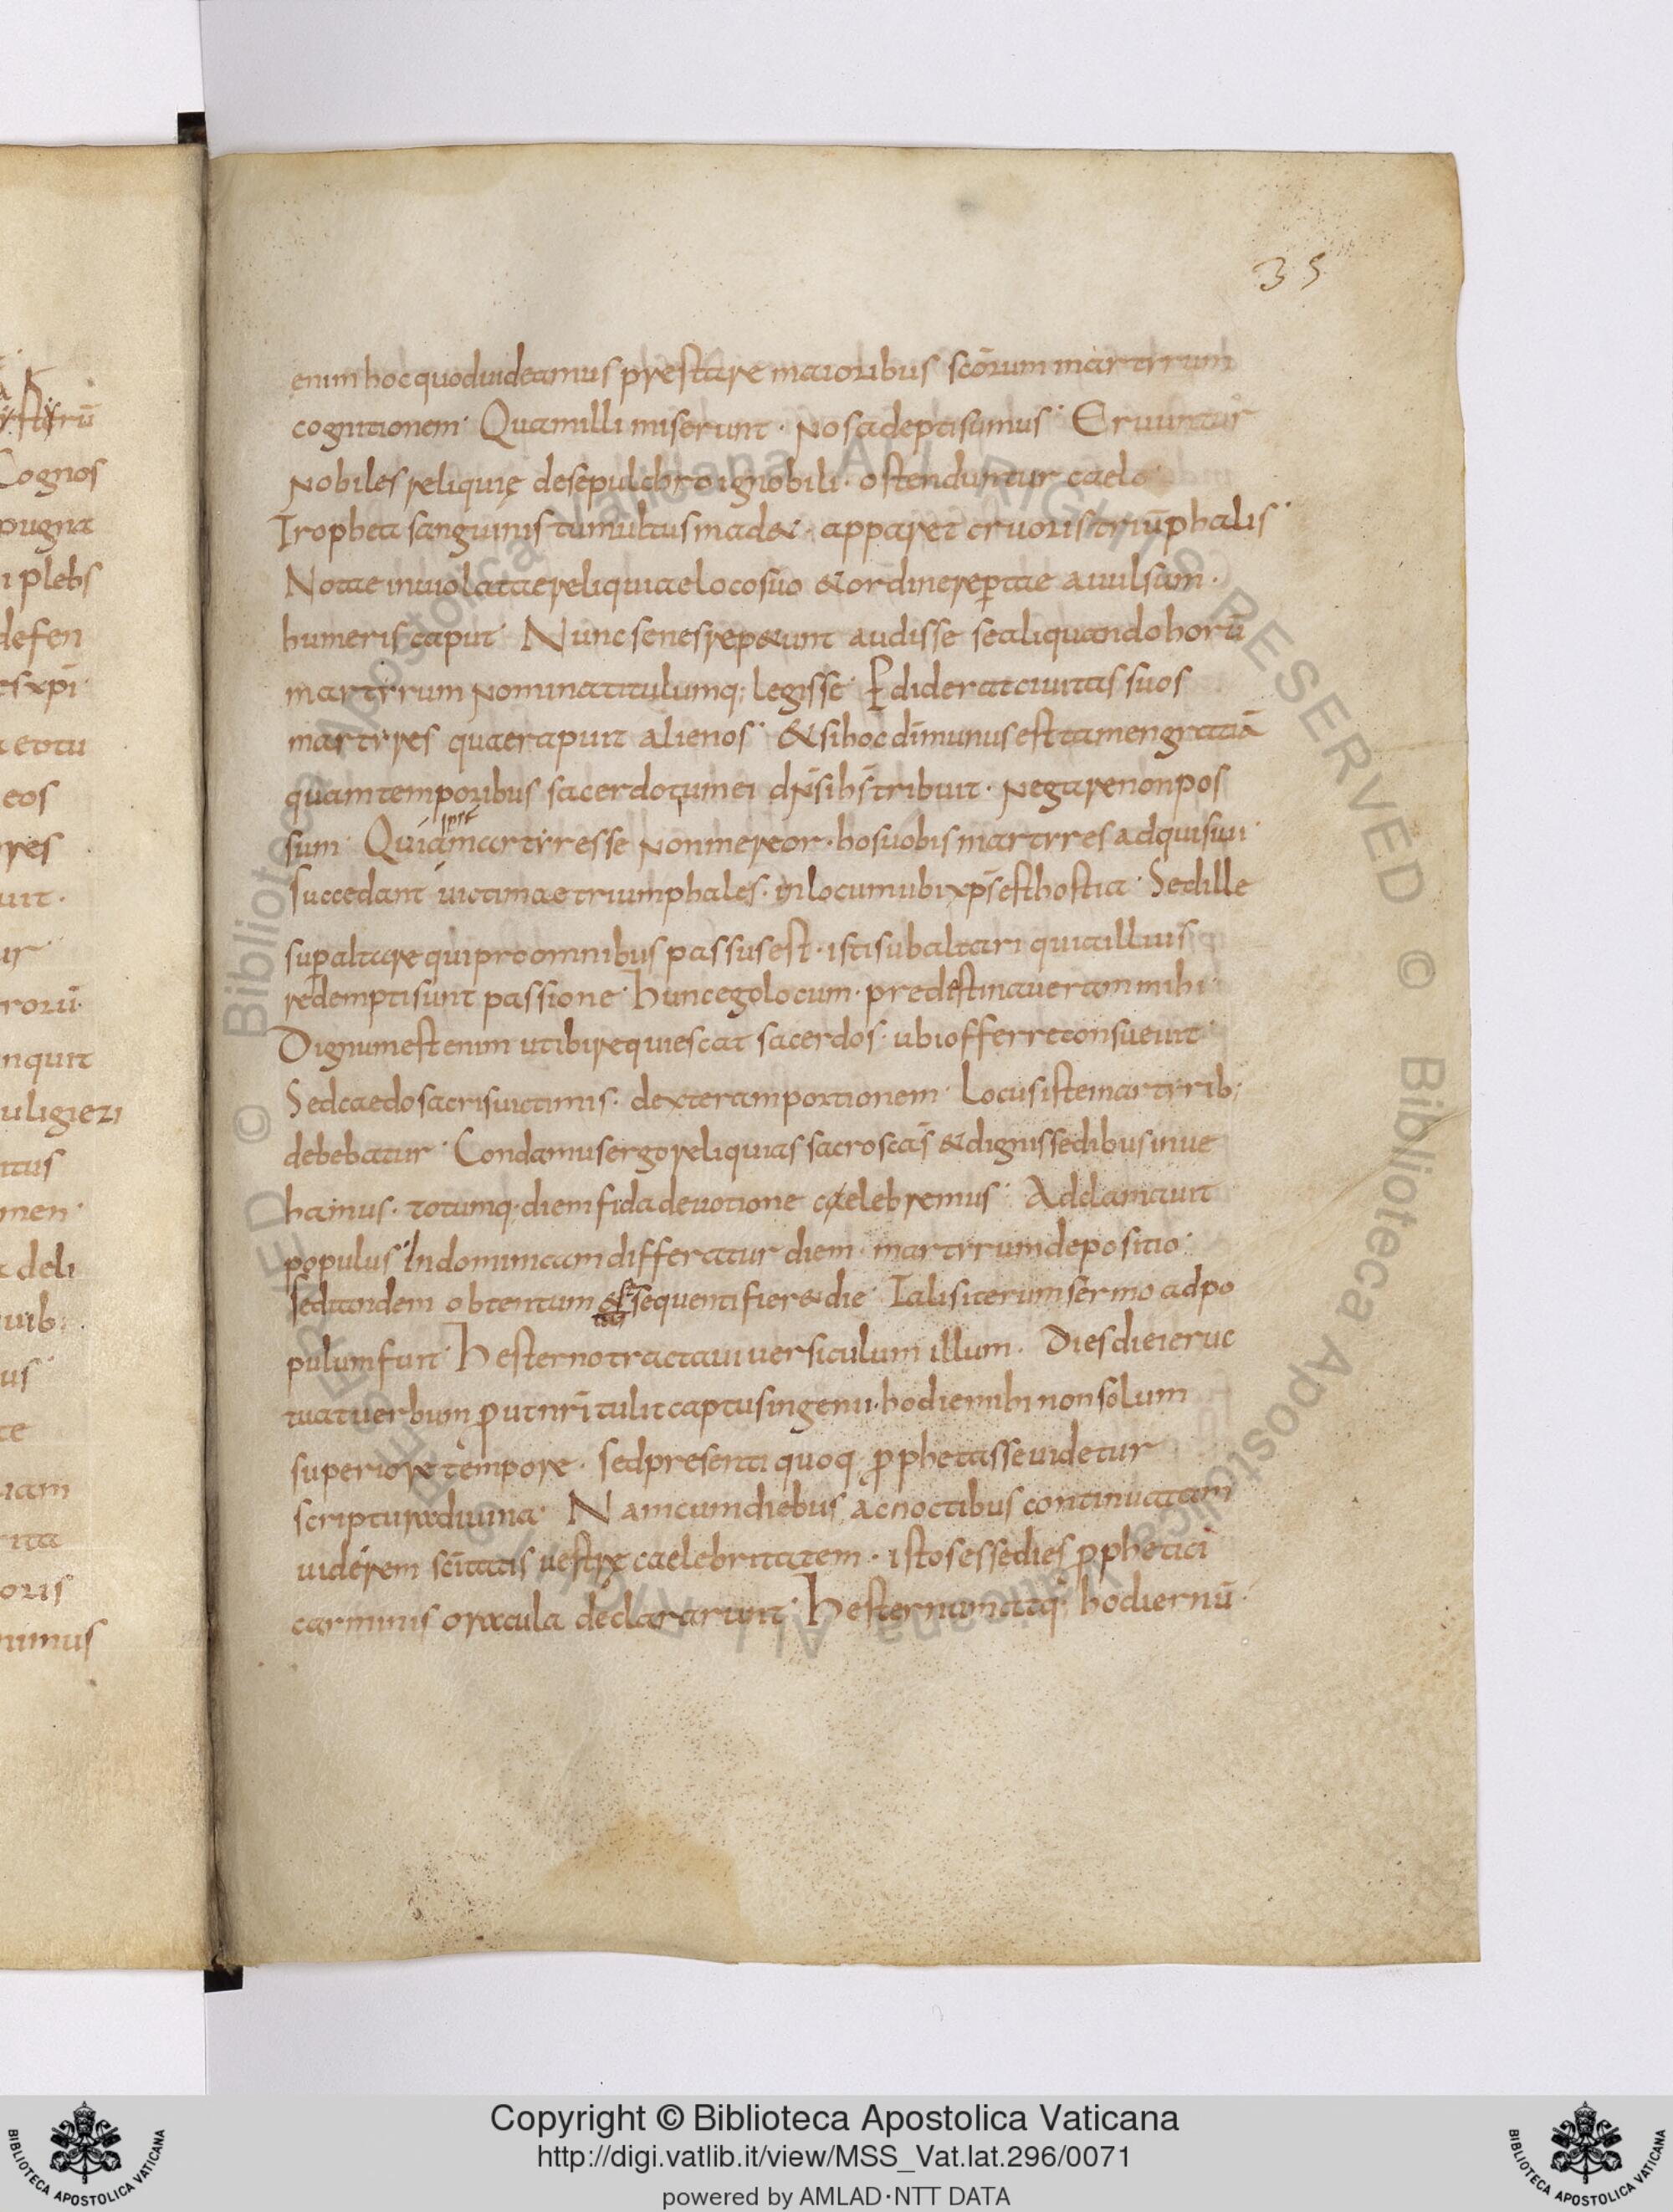 35
enim hoc quod uideamus prestare maioribus scōrum martyrum
cognitionem· Quam illi miserunt· Nos adepti sumus· Eruuntur
Nobiles reliquię de sepulchro ignobili· ostenduntur caelo
Trophea sanguinis tumultus mad&· apparet cruoris triūphalis·
Notae inuiolatae reliquiae loco suo & ordine rep̄tae auulsum·
humeris caput· Nunc senes rep&unt audisse se aliquando horū
martyrum Nomina titulumq; legisse· Pdiderat ciuitas suos
martyres quae rapuit alienos· & si hoc dī munus est tamen gratiā
quam temporibus sacerdotū mei dN̄s ihs̄ tribuit· Negare non pos
sum· Quia ipse martyr esse Non mereor· hos uobis martyres adquisiui·
succedant uictimae triumphales· in locum ubi xps̄ est hostia· Sed ille
sup̄ altare qui pro omnibus passus est· isti sub altari qui illius
redempti sunt passione· hunc ego locum· predestinaueram mihi·
Dignum est enim ut ibi requiescat sacerdos· ubi offerre consueuit·
Sed caedo sacris uictimis· dexteram portionem· Locus iste martyrib;
debebatur· Condamus ergo reliquias sacroscās & dignis sedibus inue
hamus· totumq· diem fida deuotione caelebremus· Adclamauit
populus· In dominicam differatur diem· martyrum depositio·
sed tandem obtentum est sequenti fier& die· Talis iterum sermo ad po
pulum fuit· Hesterno tractaui uersiculum illum· Dies diei eruc
tuat uerbum p̄ut nr̄i tulit captus ingenii· hodie mihi non solum
superiore tempore· sed presenti quoq· p̄phetasse uidetur
scripturae diuina· Nam cum diebus ac noctibus continuatam
uiderem sc̄itatis uestrę caelebritatem· istos esse dies p̄phetici
carminis oracula declararunt· Hesternum atq; hodiernū·
ystirū
Cognos
pugna
i plebs
defen
es xpī
eos
uit·
ur
rorū·
nquit
uligiezi
itus
men·
deli
uib
us
te
iam
rita
oris
nimus
© Biblioteca Apostolica Vaticana ALL RIGHTS RESERVED
© Biblioteca Apostolica Vaticana ALL RIGHTS RESERVED
BIBLIOTECA APOSTOLICA VATICANA
Copyright © Biblioteca Apostolica Vaticana
http://digi.vatlib.it/view/MSS_Vat.lat.296/0071
powered by AMLAD·NTT DATA
BIBLIOTECA APOSTOLICA VATICANA